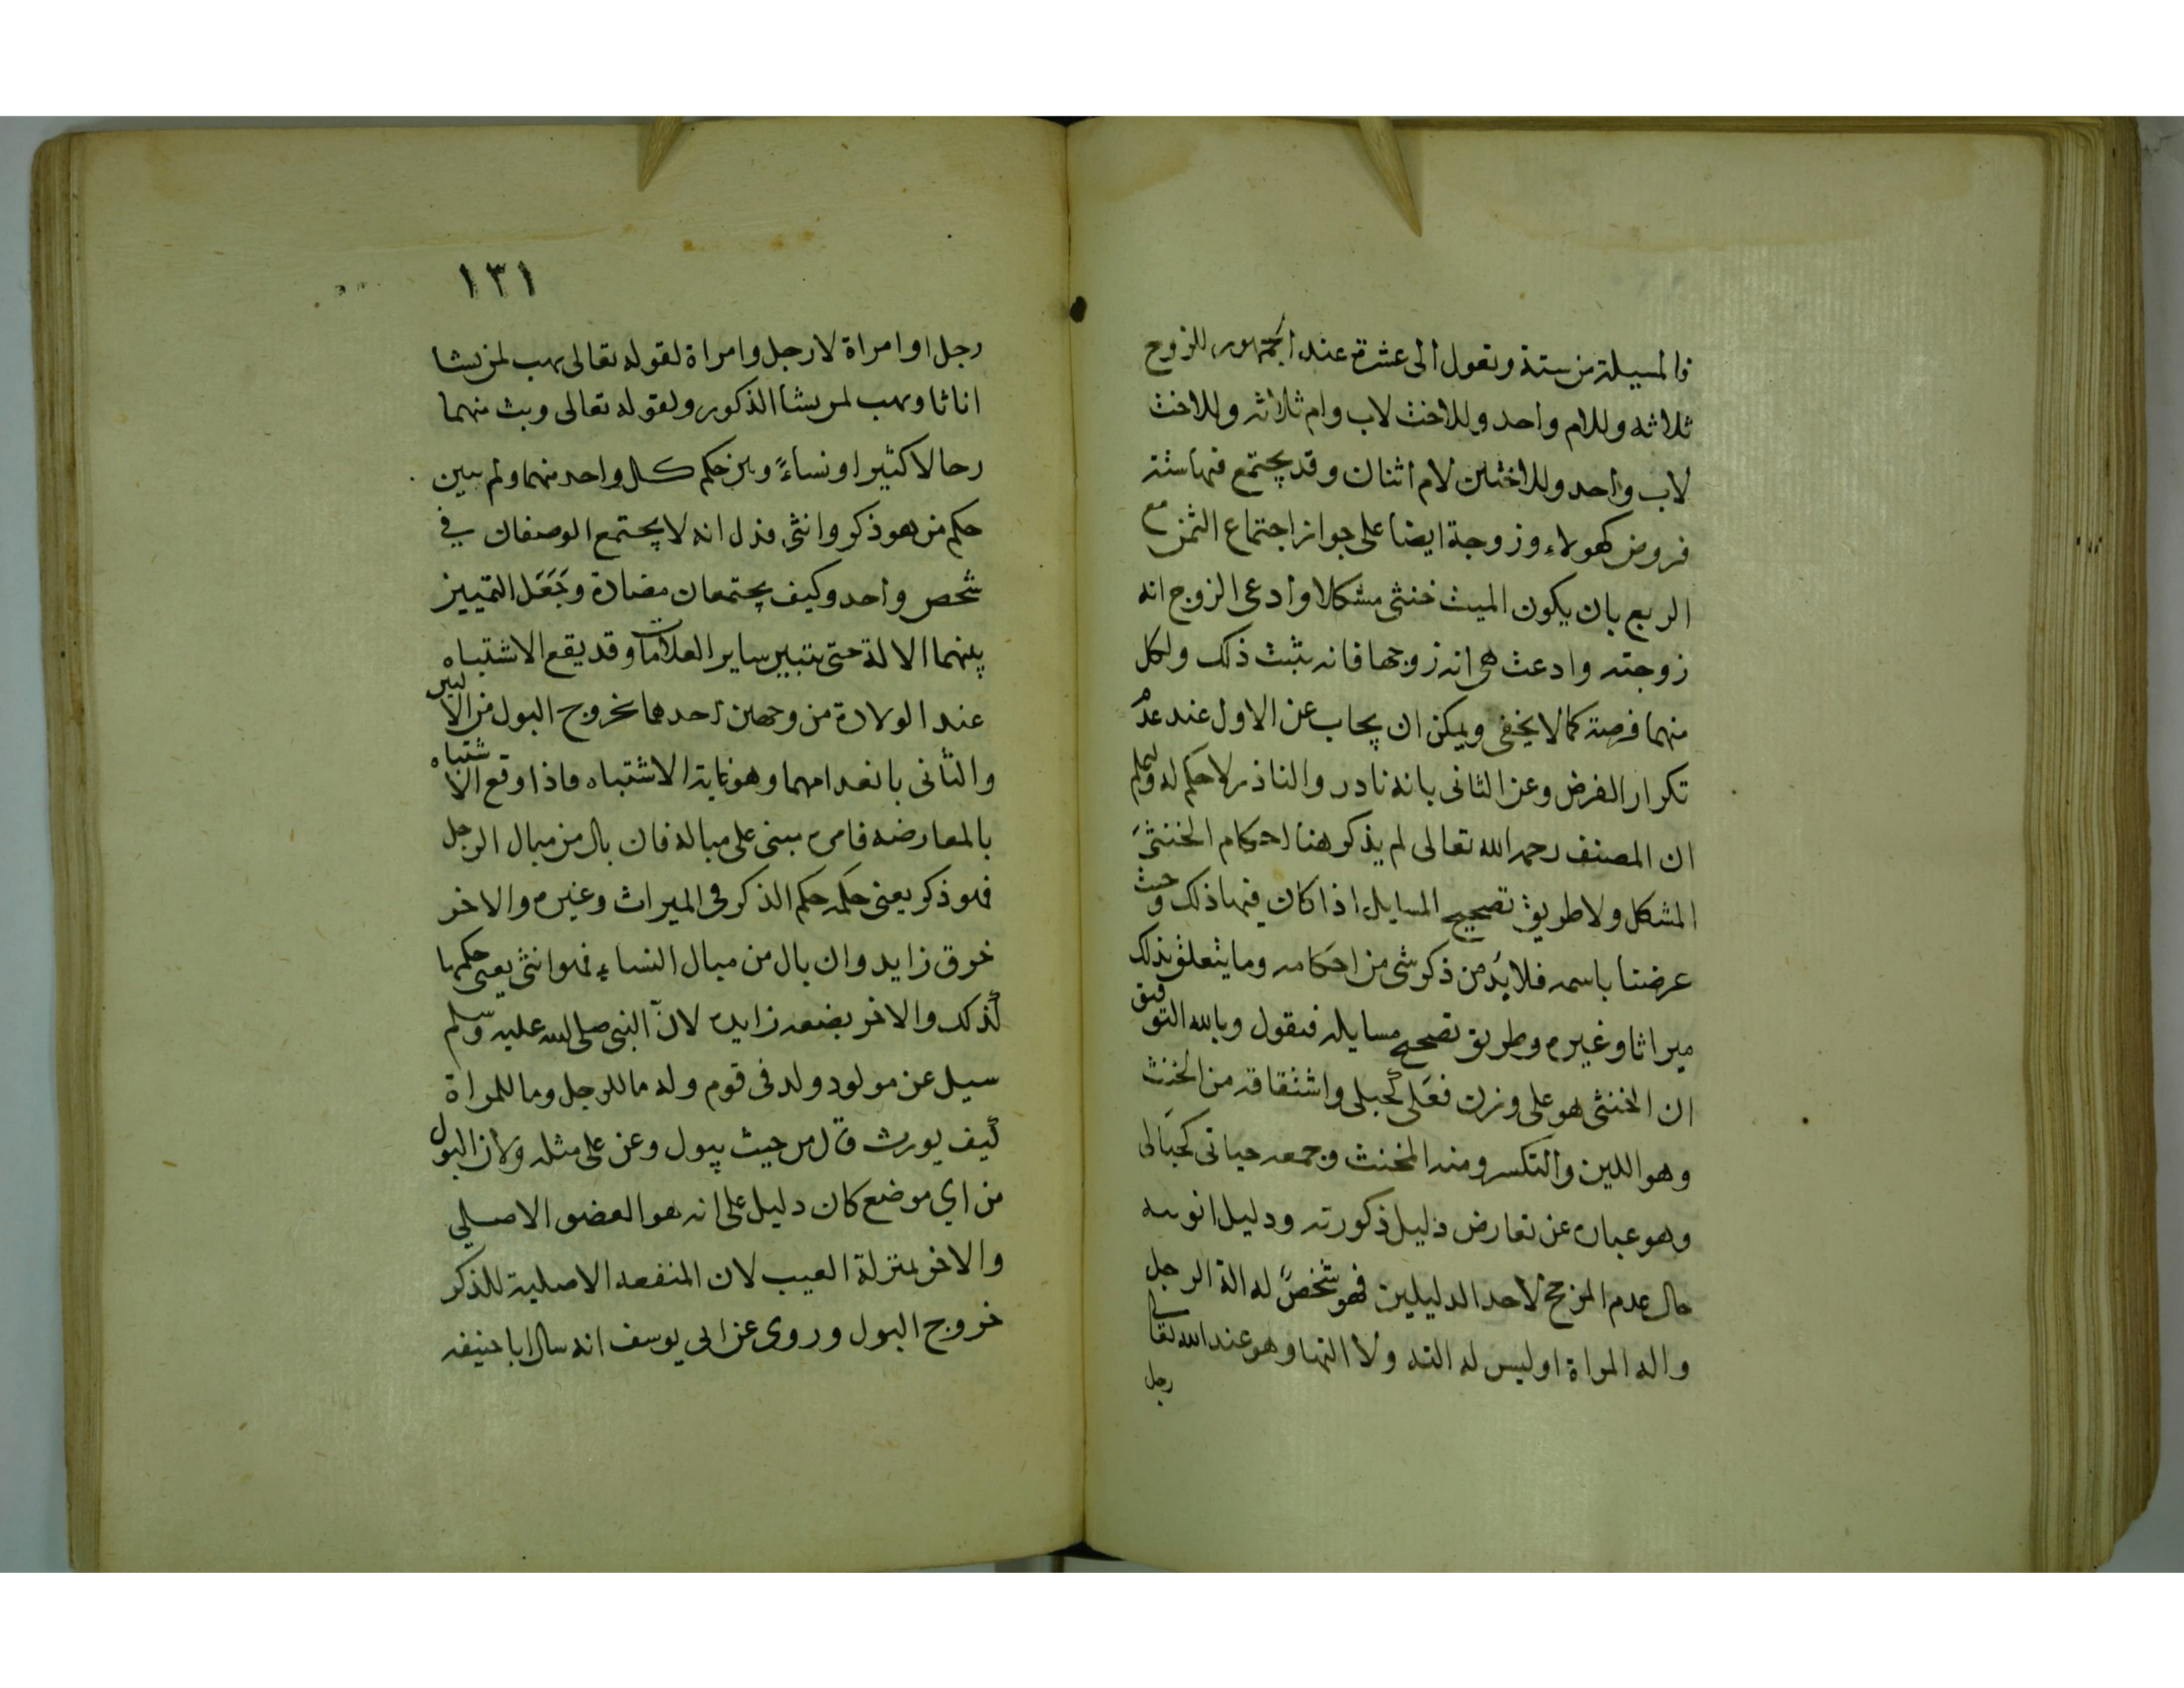 فالمسيلة من ستة وتعول الى عشرة عند الجمهور للزوج
ثلاثه وللام واحد وللاخت لاب وام ثلاثه وللاخت
لاب واحد وللاختين لام اثنان وقد يجتمع فيها ستة
فروض كهولاء وزوجة ايضا على جواز اجتماع الثمن مع
الربع بان يكون الميت خنثى مشكلا وادعى الزوج انه
زوجته وادعت هى انه زوجها فانه يثبت ذلك ولكل
منهما فرضه كما لا يخفى ويمكن ان يجاب عن الاول عند عدم
تكرار الفرض وعن الثانى بانه نادر والناذر لا حكم له وليعلم
ان المصنف رحمه الله تعالى لم يذكر هنا احكام الخنثى
المشكل ولا طريق تصحيح المسايل اذا كان فيها ذلك وحيث
عرضنا باسمه فلا بد من ذكر شى من احكامه وما يتعلق بذلك
ميراثا وغيره وطريق تصحيح مسايله فنقول وبالله التوفيق
ان الخنثى هو على وزن فعلى كحبلى واشتقاقه من الخنث
وهو اللين والتكسر ومنه المخنث وجمعه حباتى كحبالى
وهو عباره عن تعارض دليل ذكورته ودليل انوثيه
حال عدم المرجح لاحد الدليلين فهو شخص له الة الرجل
واله المراة او ليس له الته ولا التها وهو عند الله تعالى
رجل
١٣١
رجل او امراة لا رجل وامراة لقوله تعالى يهب لمن يشا
اناثا ويهب لمن يشا الذكور ولقوله تعالى وبث منهما
رجالا كثيرا ونساءً وبين حكم كل واحد منهما ولم يبين
حكم من هو ذكر وانثى فدل انه لا يجتمع الوصفان في
شخص واحد وكيف يجتمعان مضادة وجَعَل التمييز
بينهما الالة حتى يتبين ساير العلامات وقد يقع الاشتباه
عند الولادة من وجهين احدهما بخروج البول من الالتين
والثانى بانعدامهما وهو غاية الاشتباه فاذا وقع الاشتباه
بالمعارضه فامره مبنى على مباله فان بال من مبال الرجل
فهو ذكر يعنى حكمه حكم الذكر فى الميراث وغيره والاخر
خرق زايد وان بال من مبال النساء فهو انثى يعنى حكمها
كذلك والاخر بضعه زايده لانّ النبى صلى الله عليه وسلم
سيل عن مولود ولد فى قوم وله ما للرجل وما للمراة
كيف يورث قال من حيث يبول وعن على مثله ولان البول
من اي موضع كان دليل على انه هو العضو الاصلي
والاخر بمنزلة العيب لان المنفعه الاصلية للذكر
خروج البول وروى عن ابى يوسف انه سال ابا حنيفه